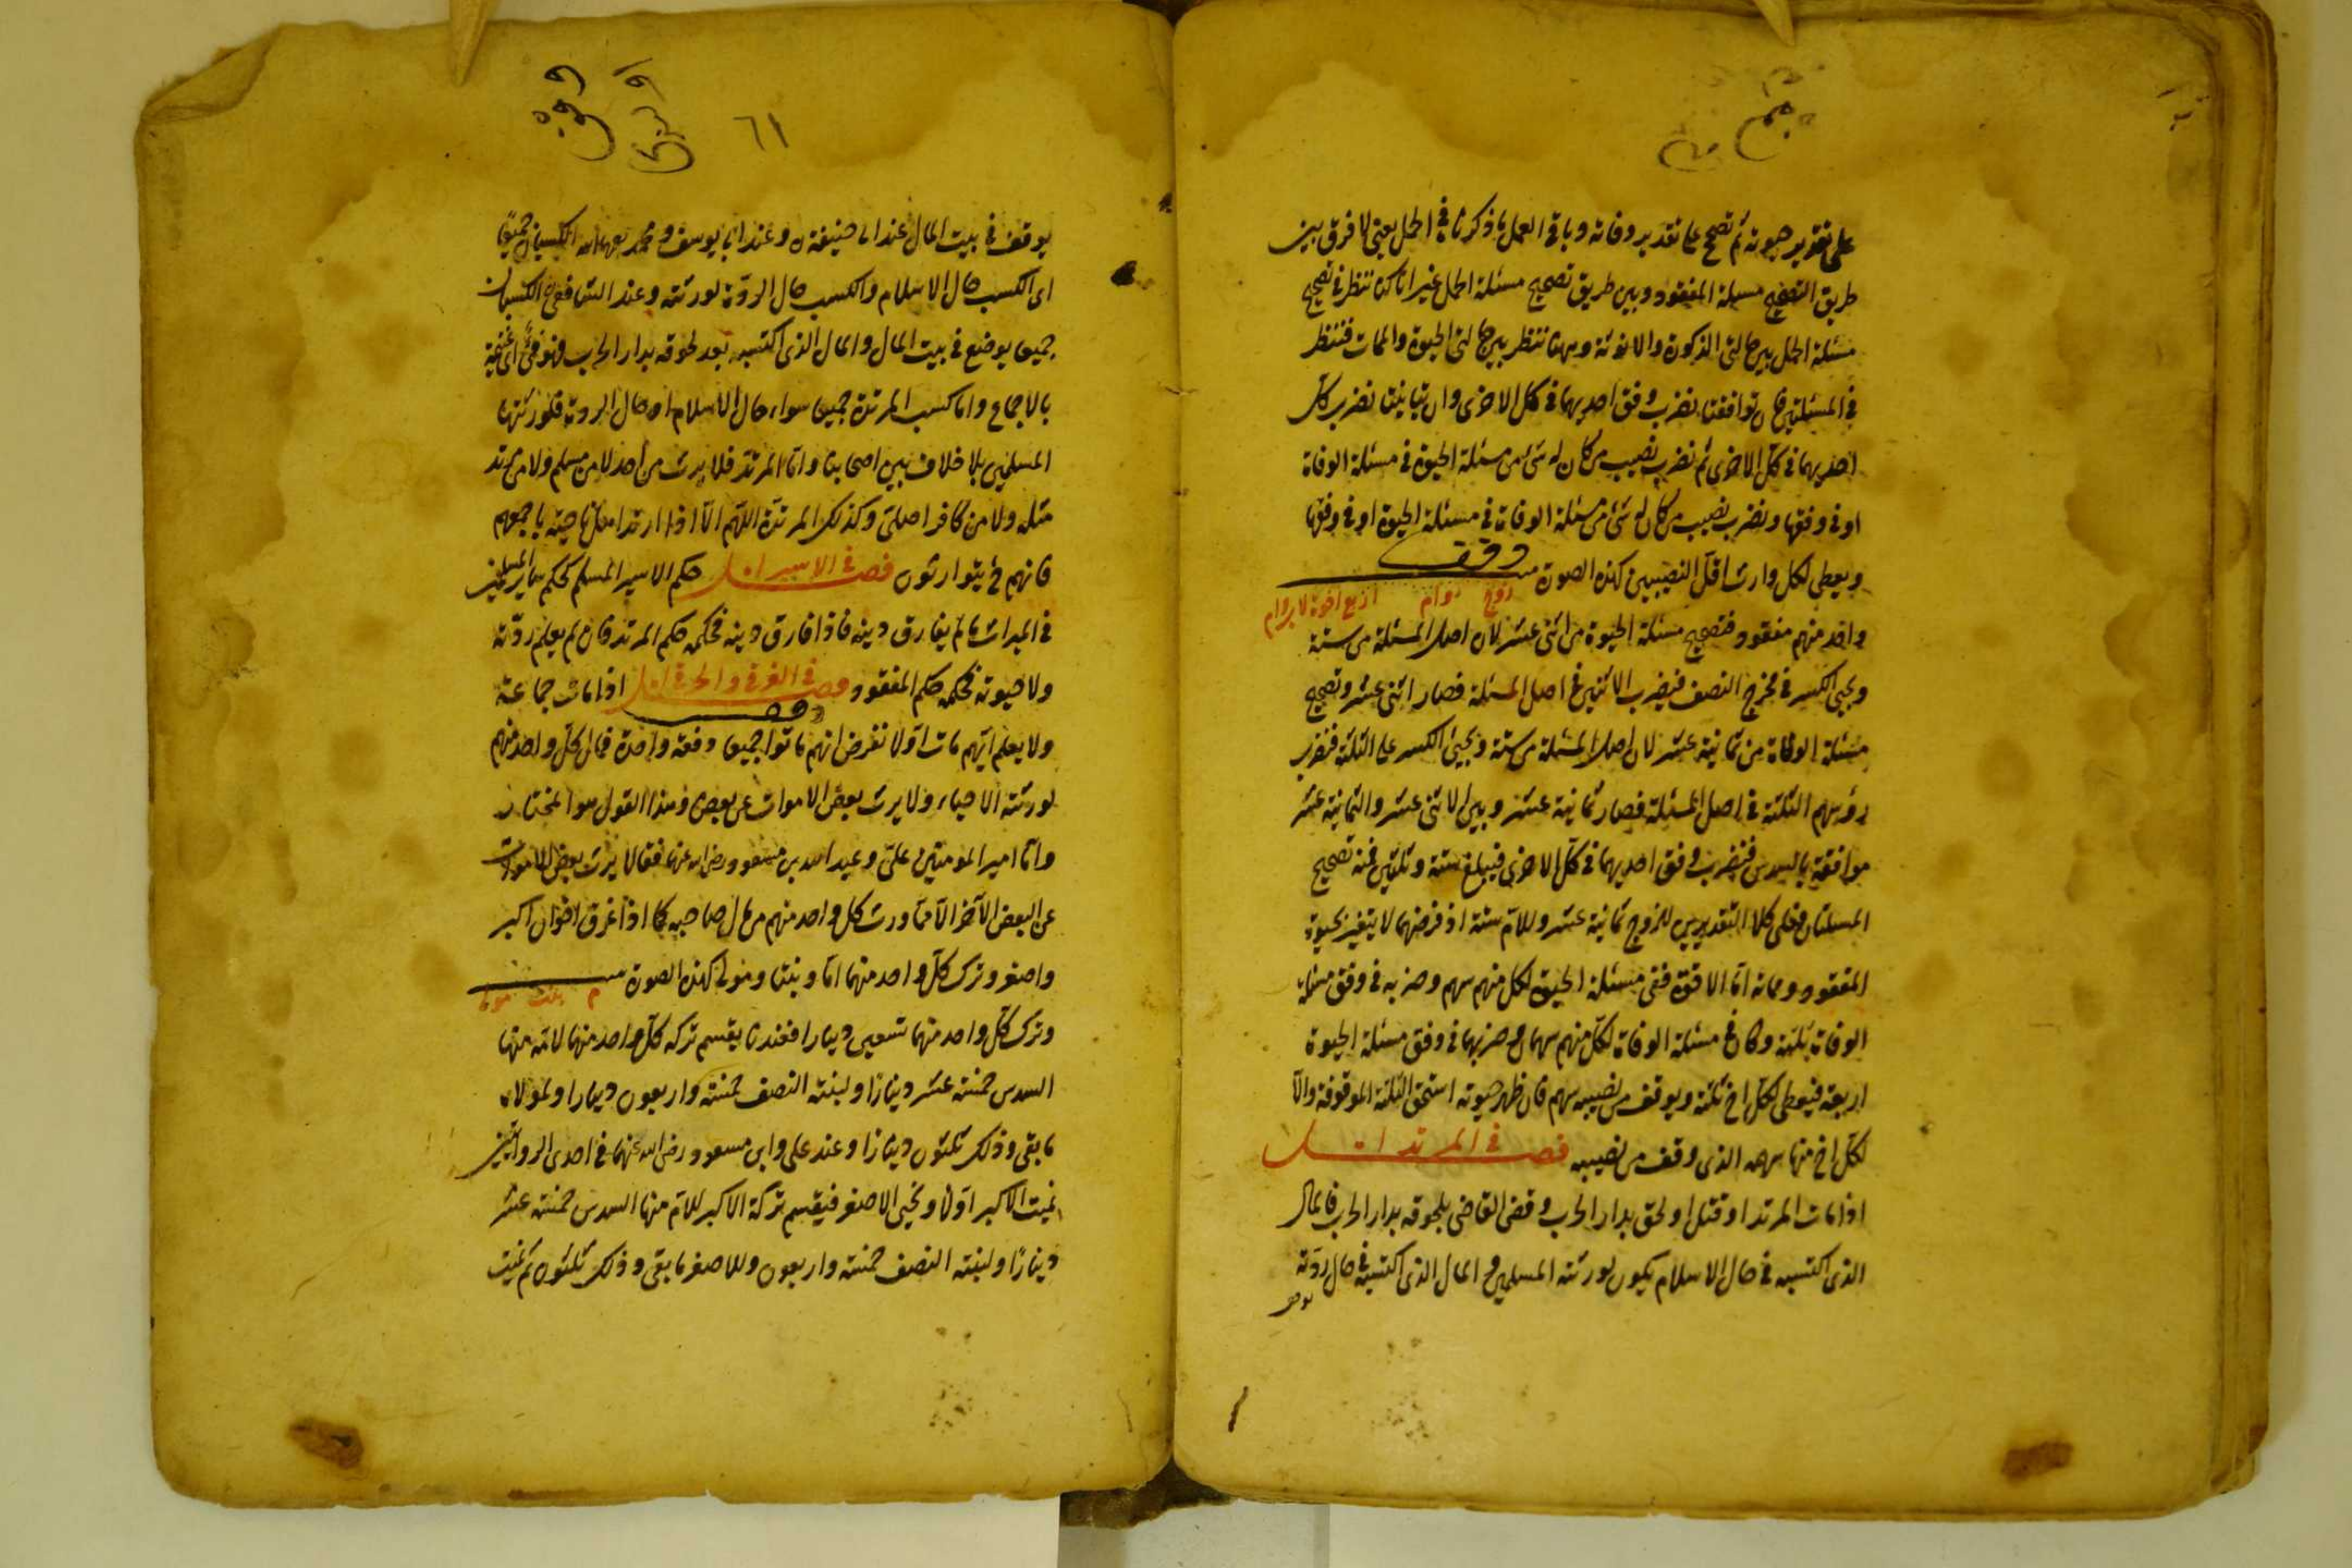 على تقدير حيوته ثم تصحح على تقدير وفاته وباقى العمل ما ذكرنا في الحمل يعنى لا فرق بين
طريق التصحيح مسئلة المفقود وبين طريق تصحيح مسئلة الحمل غير انا كنا ننظر في تصحيح
مسئلة الحمل بين حالتى الذكورة والانوثة وههنا ننظر بين حالتى الحيوة والممات فننظر
في المسئلتين فان توافقتا نضرب وفق احديهما في كل الاخرى وان تباينتا نضرب كل
احديهما في كل الاخرى ثم نضرب نصيب من كان له شئ من مسئلة الحيوة في مسئلة الوفاة
او في وفقها ونضرب نصيب من كان له شئ من مسئلة الوفاة في مسئلة الحيوة او في وفقها
ويعطى لكل وارث اقل النصيبين كهذه الصورة
زوج وام اربع اخوة لاب وام
واحد منهم مفقود فتصحيح مسئلة الحيوة من اثنى عشر لان اصل المسئلة من ستة
ويجئ الكسر في مخرج النصف فيضرب الاثنين في اصل المسئلة فصار اثنى عشر وتصحيح
مسئلة الوفاة من ثمانية عشر لان اصل المسئلة من ستة ويجئ الكسر على الثلثة فنضرب
رؤسهم الثلثة في اصل المسئلة فصار ثمانية عشر وبين الاثنى عشر والثمانية عشر
موافقة بالسدس فنضرب وفق احديهما في كل الاخرى فيبلغ ستة وثلثين فمنه تصحيح
المسئلتان فعلى كلا التقديرين للزوج ثمانية عشر وللام ستة اذ فرضهما لا يتغير بحيوة
المفقود ومماته اما الاخوة ففى مسئلة الحيوة لكل منهم سهم وضربه في وفق مسئلة
الوفاة ثلثة وكان في مسئلة الوفاة لكل منهم سهمان وضربهما في وفق مسئلة الحيوة
اربعة فيعطى لكل اخ ثلثة ويوقف من نصيبه سهم فان ظهر حيوته استحق الثلثة الموقوفة والا
لكل اخ منها سهمه الذى وقف من نصيبه فصل في المرتد
اذا مات المرتد او قتل او لحق بدار الحرب وقضى القاضى بلحوقه بدار الحرب فالمال
الذى اكتسبه في حال الاسلام يكون لورثته المسلمين والمال الذى اكتسبه في حال ردته
يوقف
٦١
يوقف في بيت المال عند ابى حنيفة وعند ابى يوسف ومحمد رحمهما الله الكسبان جميعا
اى الكسب حال الاسلام والكسب حال الردة لورثته وعند الشافعى الكسبان
جميعا يوضع في بيت المال والمال الذى اكتسبه بعد لحوقه بدار الحرب فهو فئ اى غنيمة
بالاجماع واما كسب المرتدة جميعا سواء حال الاسلام او حال الردة فلورثتها
المسلمين بلا خلاف بين اصحابنا واما المرتد فلا يرث من احد لا من مسلم ولا من مرتد
مثله ولا من كافر اصلى وكذلك المرتدة اللهم الا اذا ارتد اهل ناحية باجمعهم
فانهم ح يتوارثون فصل في الاسير حكم الاسير المسلم كحكم سائر المسلمين
في الميراث ما لم يفارق دينه فاذا فارق دينه فحكمه حكم المرتد فان لم يعلم ردته
ولا حيوته فحكمه حكم المفقود فصل في الغرقى والحرقى اذا مات جماعة
ولا يعلم ايهم مات اولا نفرض انهم ماتوا جميعا دفعة واحدة فمال كل واحد منهم
لورثته الاحياء ولا يرث بعض الاموات عن بعض وهذا القول هو المختار
واما امير المومنين على وعبد الله بن مسعود رضى الله عنهما فقالا يرث بعض الاموات
عن البعض الاخر الا مما ورث كل واحد منهم من مال صاحبه كما اذا غرق اخوان اكبر
واصغر وترك كل واحد منهما اما وبنتا ومولى كهذه الصورة
م بنت مولى
وترك كل واحد منهما تسعين دينارا فعندنا يقسم تركة كل واحد منهما لامه منها
السدس خمسة عشر دينارا ولبنته النصف خمسة واربعون دينارا ولمولاه
ما بقى وذلك ثلثون دينارا وعند على وابن مسعود رضى الله عنهما في احدى الروايتين
نميت الاكبر اولا ونحيى الاصغر فيقسم تركة الاكبر للام منها السدس خمسة عشر
دينارا ولبنته النصف خمسة واربعون وللاصغر ما بقى وذلك ثلثون ثم نميت